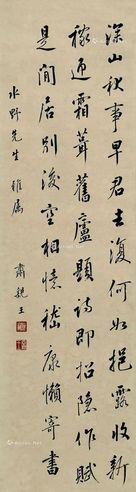 深山秋事早君去復何如挹露收新
稼迎霜葺舊廬題詩即招隱作賦
是閒居別後空相憶嵇康懶寄書
水野先生雅屬
肅親王